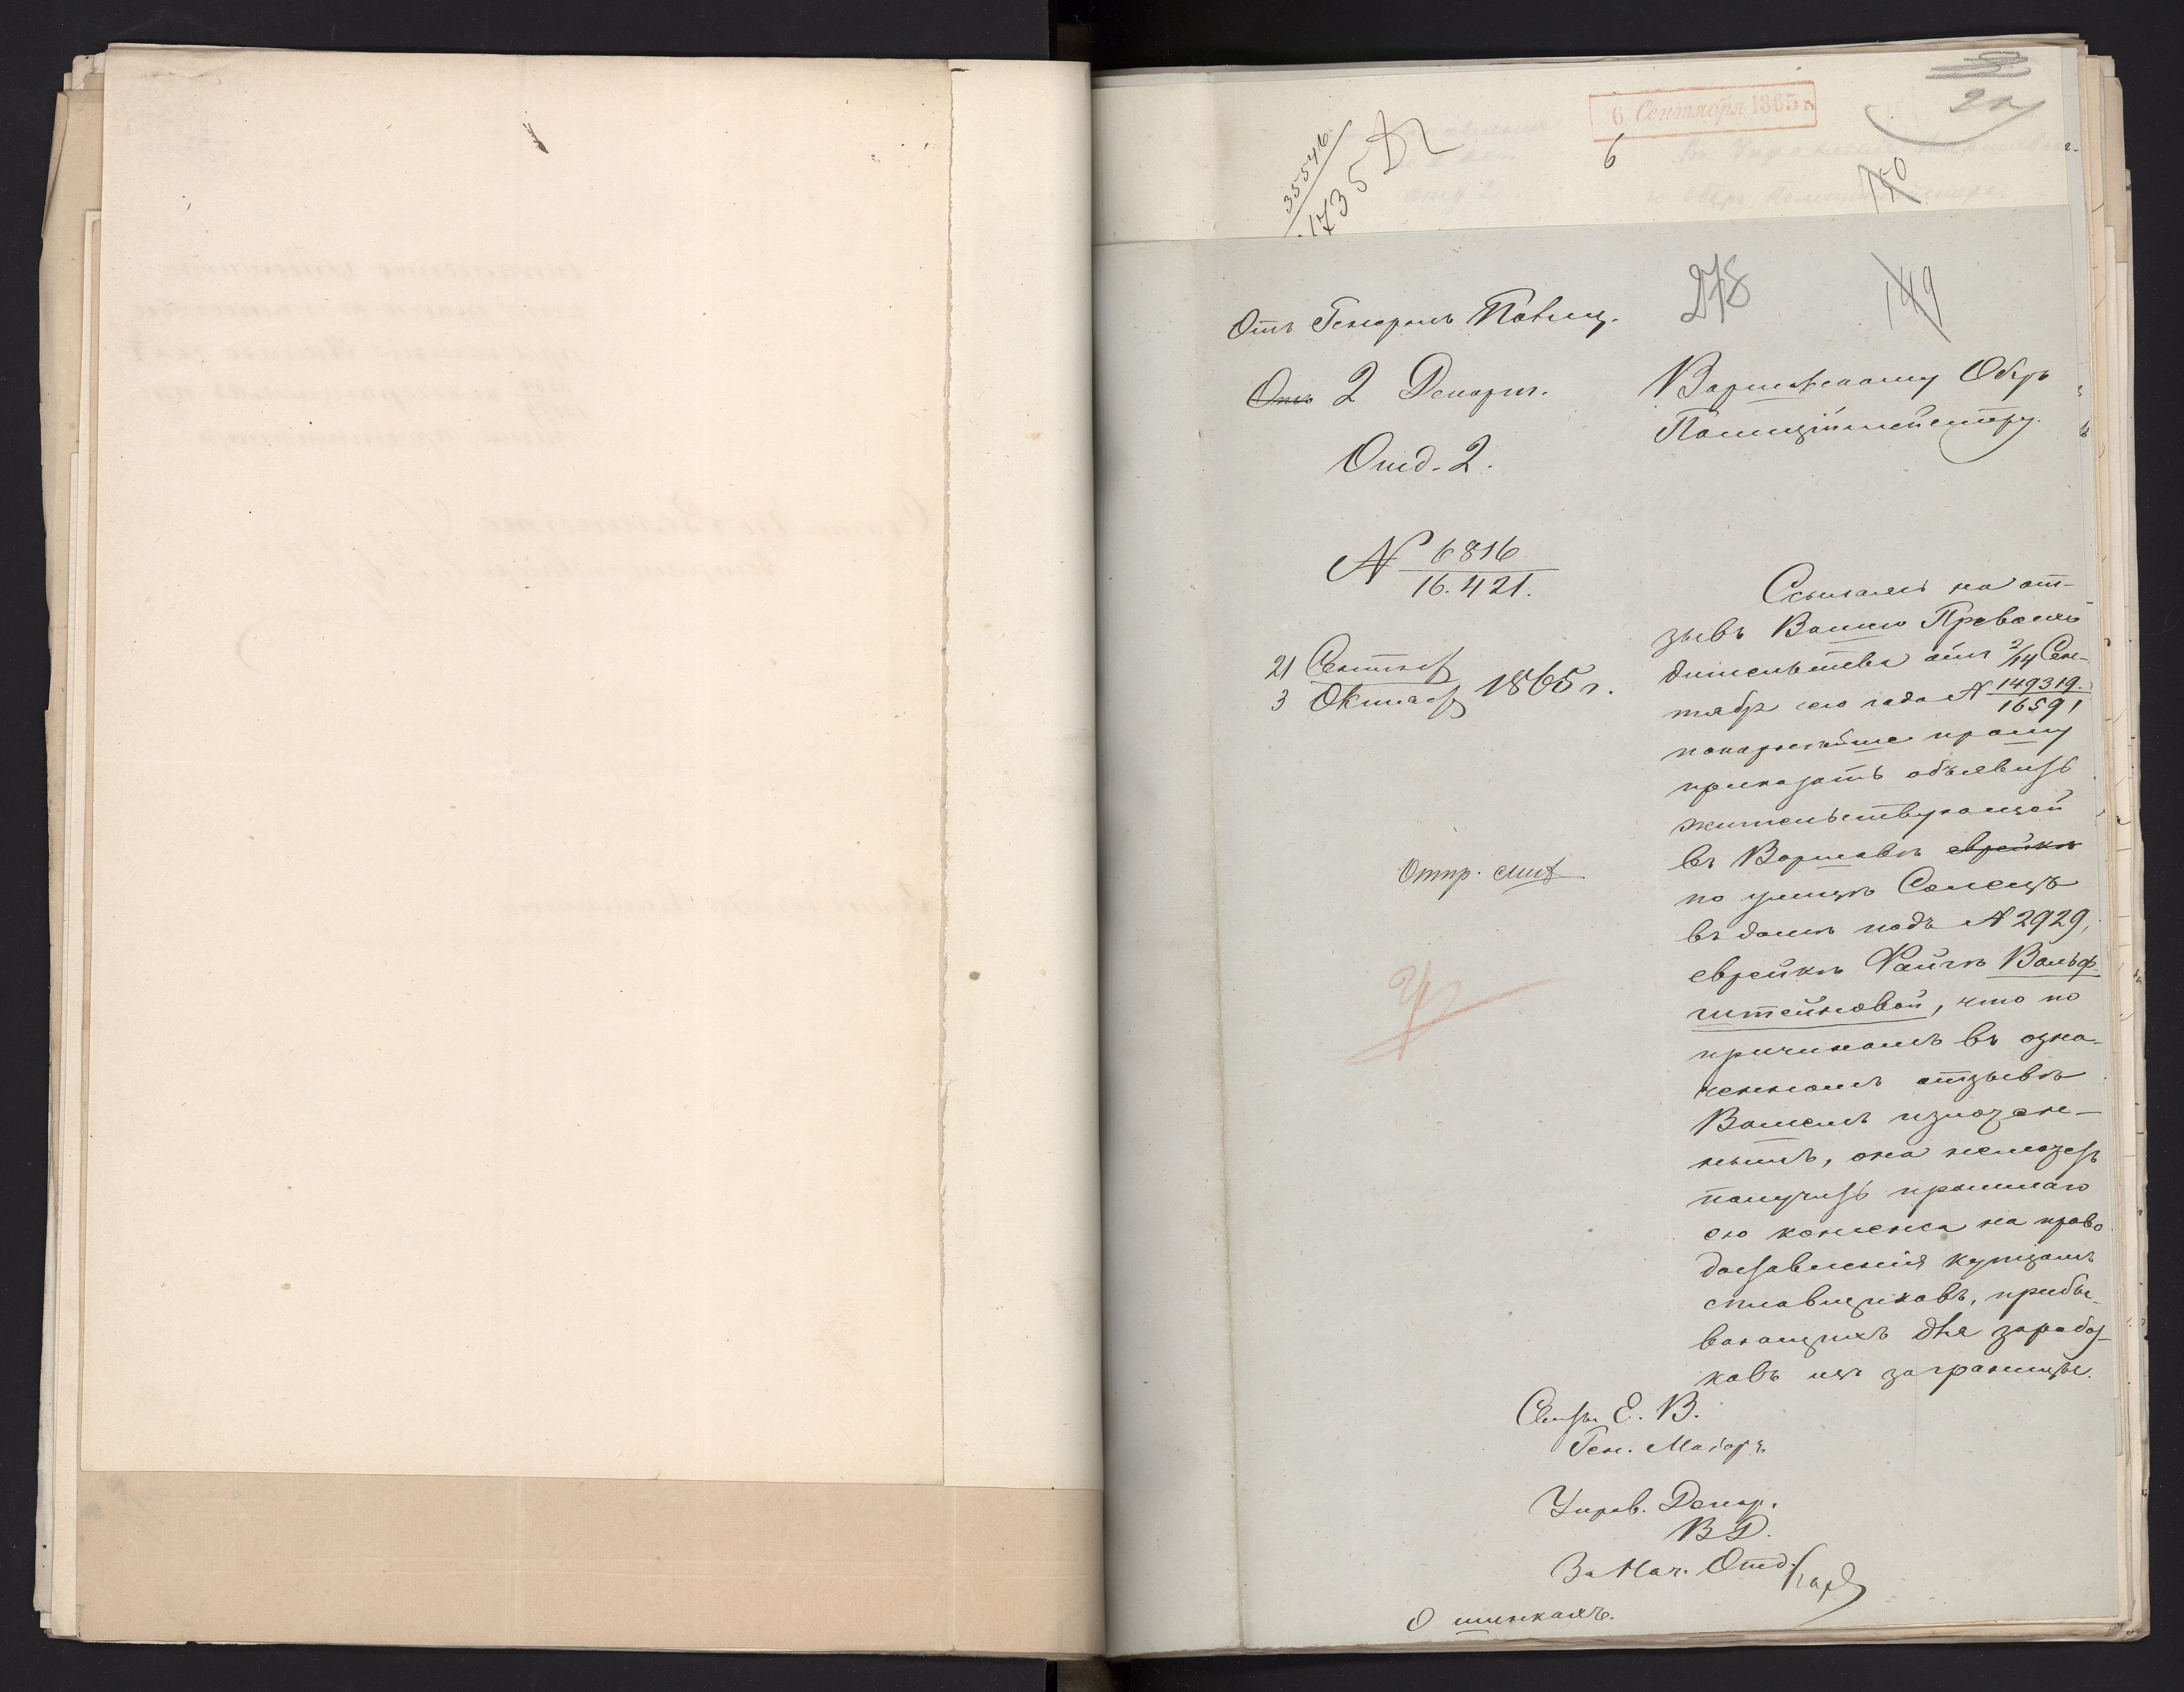 6 Сентября 1865 г.
6
35546
1735
150
278
149
Отъ Генералъ Полиц.
Отъ 2 Департ.
Отд. 2.
N 6816
16.421.
21 Сентяб
3 Октяб 1865 г.
Отпр.
Варшавскому Оберъ
Полиціймейстеру.
Ссылаясь на от-
зывъ Вашего Превосхо
дительства отъ 2/14 Сен-
тября сего года N 149319.
16591
покорнейше прошу
приказать объявить
жительствующей
въ Варшавѣ еврейкѣ
по улицѣ Солецъ
въ домѣ подъ N 2929,
еврейкѣ Файгѣ Вольф-
штейновой, что по
причинамъ въ озна-
ченномъ отзывѣ
Вашемъ изложен-
нымъ, она неможетъ
получить просимаго
ею консенса на право
доставленія купцамъ
сплавщиковъ, прибы-
вающихъ для заработ-
ковъ изъ заграницы.
Свиты Е. В.
Ген. Маіоръ
Управ. Депар.
В Д.
За Нач. Отд.
О шинкахъ.